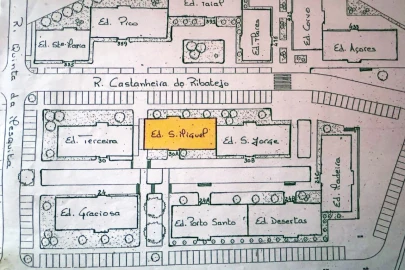 Ed. Pico
Ed. Faial
Ed. Flores
Ed. Corvo
Ed. Açores
Ed. Sta Maria
R. Castanheira do Ribatejo
R. Quinta da Mesquita
Ed. Terceira
Ed. S. Miguel
Ed. S. Jorge
Ed. Madeira
Ed. Graciosa
Ed. Porto Santo
Ed. Desertas